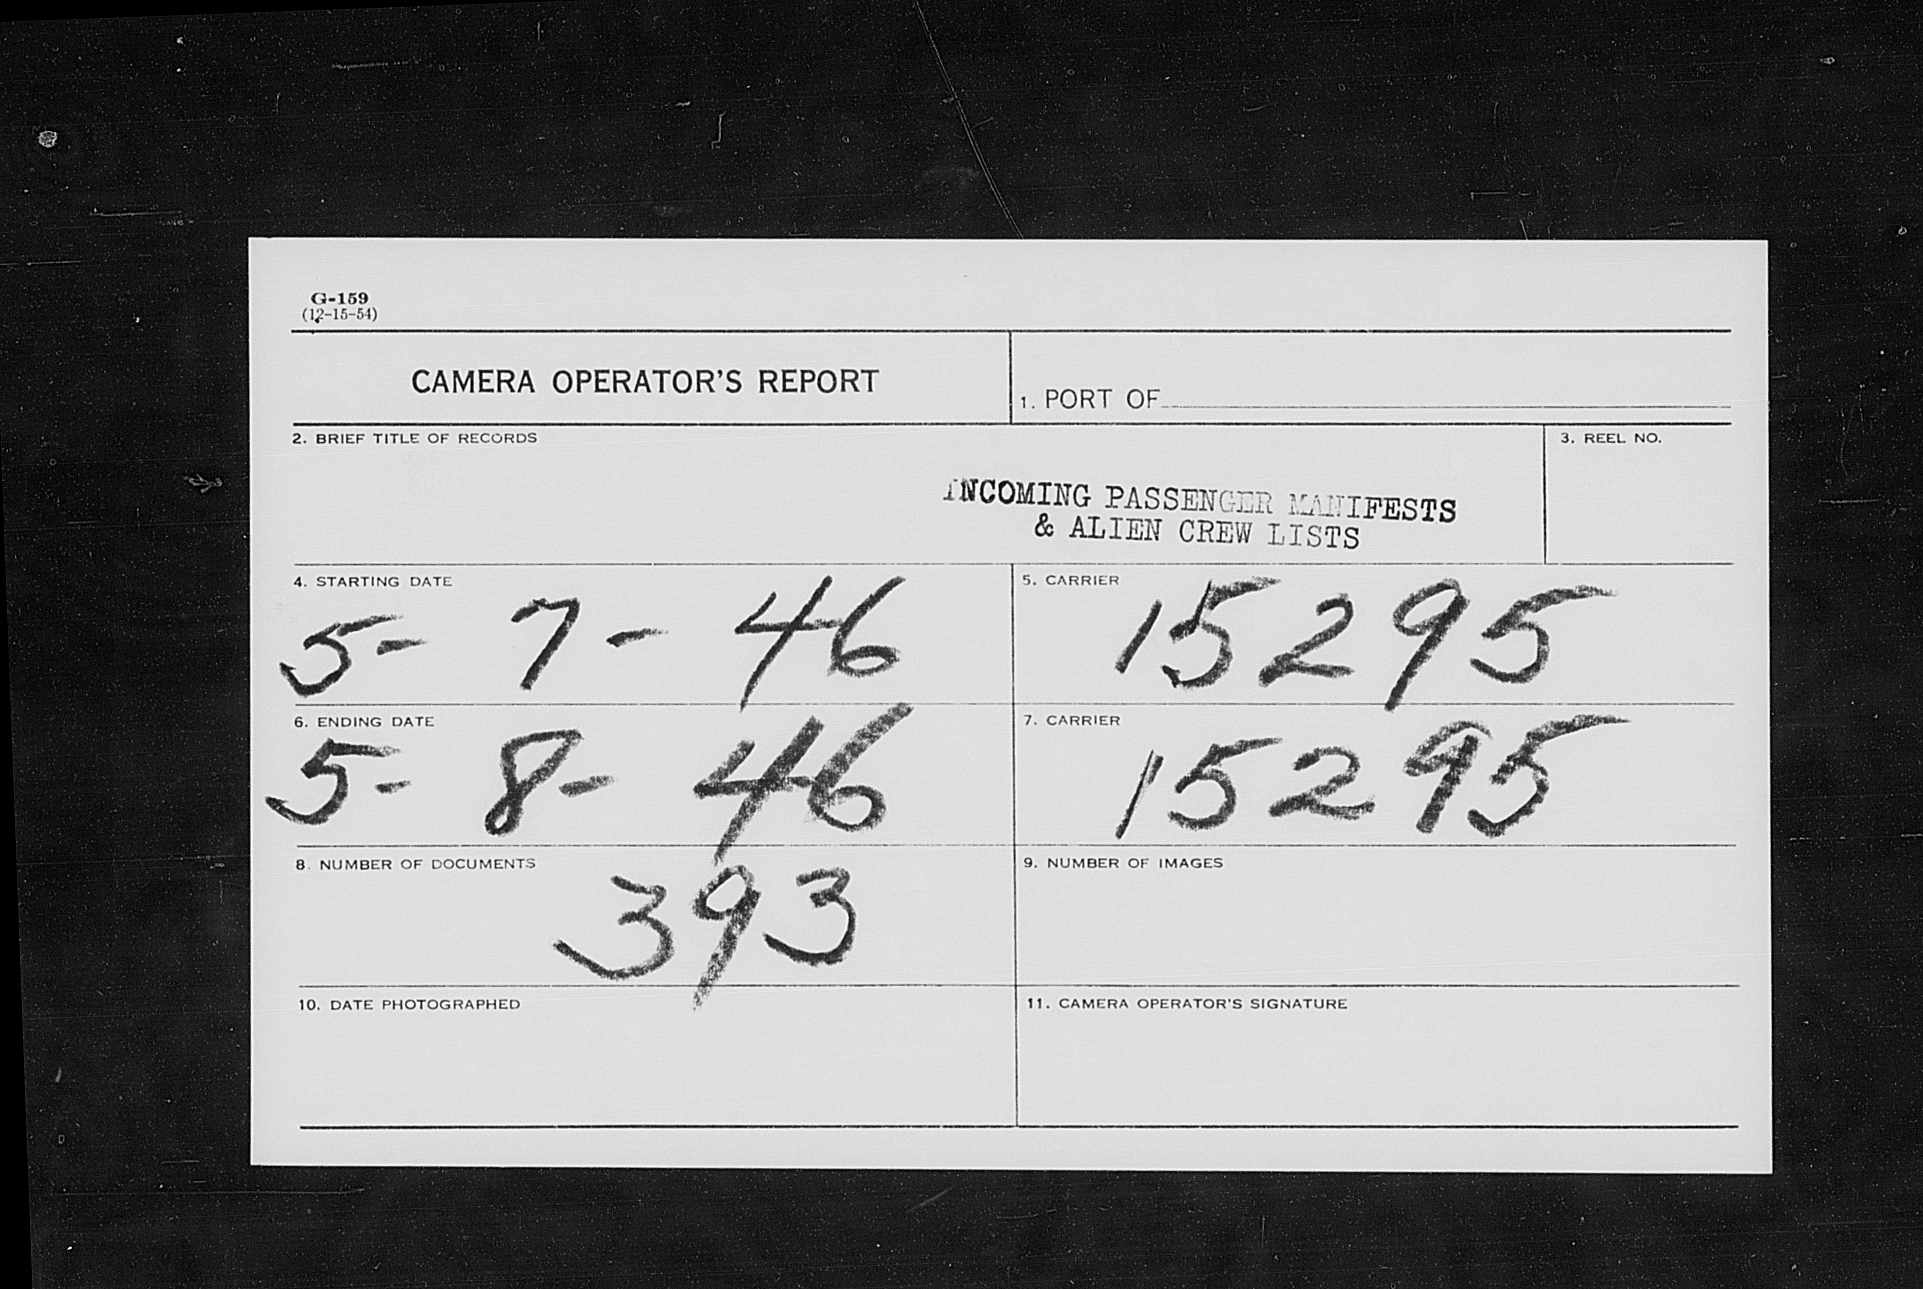 G-159
(12-15-54)
CAMERA OPERATOR'S REPORT
1. PORT OF
2. BRIEF TITLE OF RECORDS
3. REEL NO.
INCOMING PASSENGER MANIFESTS
& ALIEN CREW LISTS
4. STARTING DATE
5- 7- 46
5. CARRIER
15295
6. ENDING DATE
5- 8- 46
7. CARRIER
15295
8. NUMBER OF DOCUMENTS
393
9. NUMBER OF IMAGES
10. DATE PHOTOGRAPHED
11. CAMERA OPERATOR'S SIGNATURE